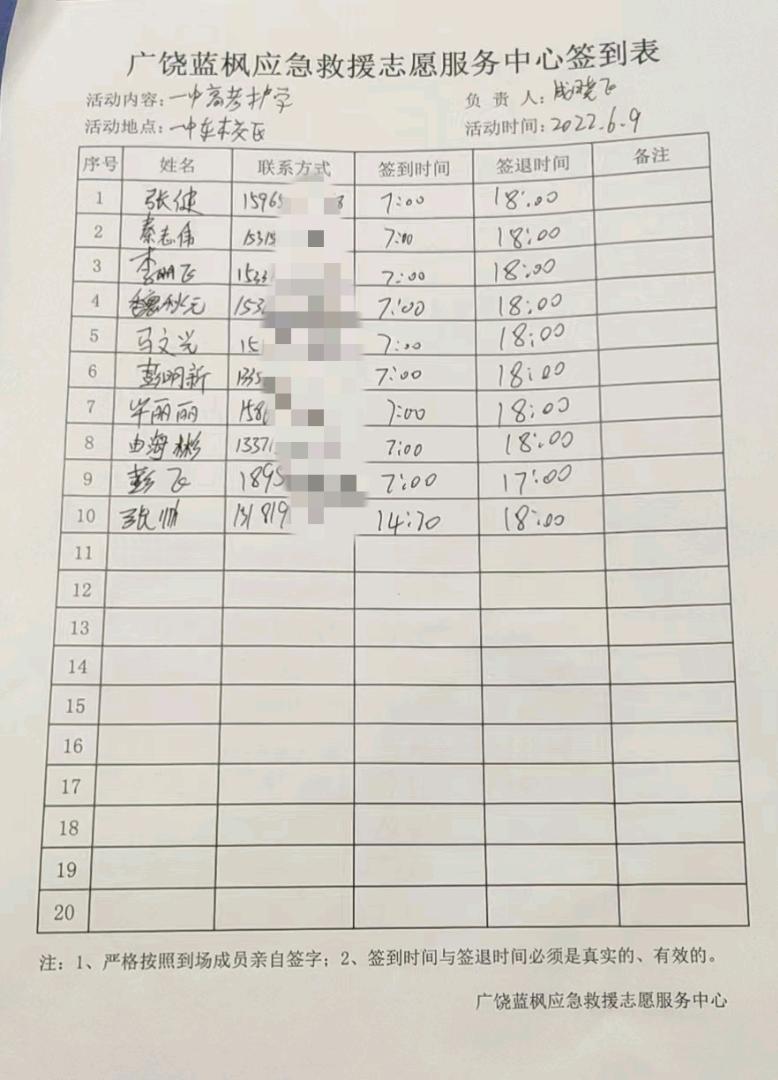 广饶蓝枫应急救援志愿服务中心签到表
活动内容：一中高考护学 负责人：成晓飞
活动地点：一中东校区 活动时间：2022.6.9
序号 姓名 联系方式 签到时间 签退时间 备注
1 张健 15965 3 7:00 18:00
2 秦志伟 1531 7:00 18:00
3 李鹏飞 1533 7:00 18:00
4 魏秋元 153 7:00 18:00
5 马文兴 15 7:00 18:00
6 彭明新 1335 7:00 18:00
7 毕丽丽 158 7:00 18:00
8 由海彬 1337 7:00 18:00
9 彭飞 1895 7:00 17:00
10 张帅 131819 14:30 18:00
11
12
13
14
15
16
17
18
19
20
注：1、严格按照到场成员亲自签字；2、签到时间与签退时间必须是真实的、有效的。
广饶蓝枫应急救援志愿服务中心